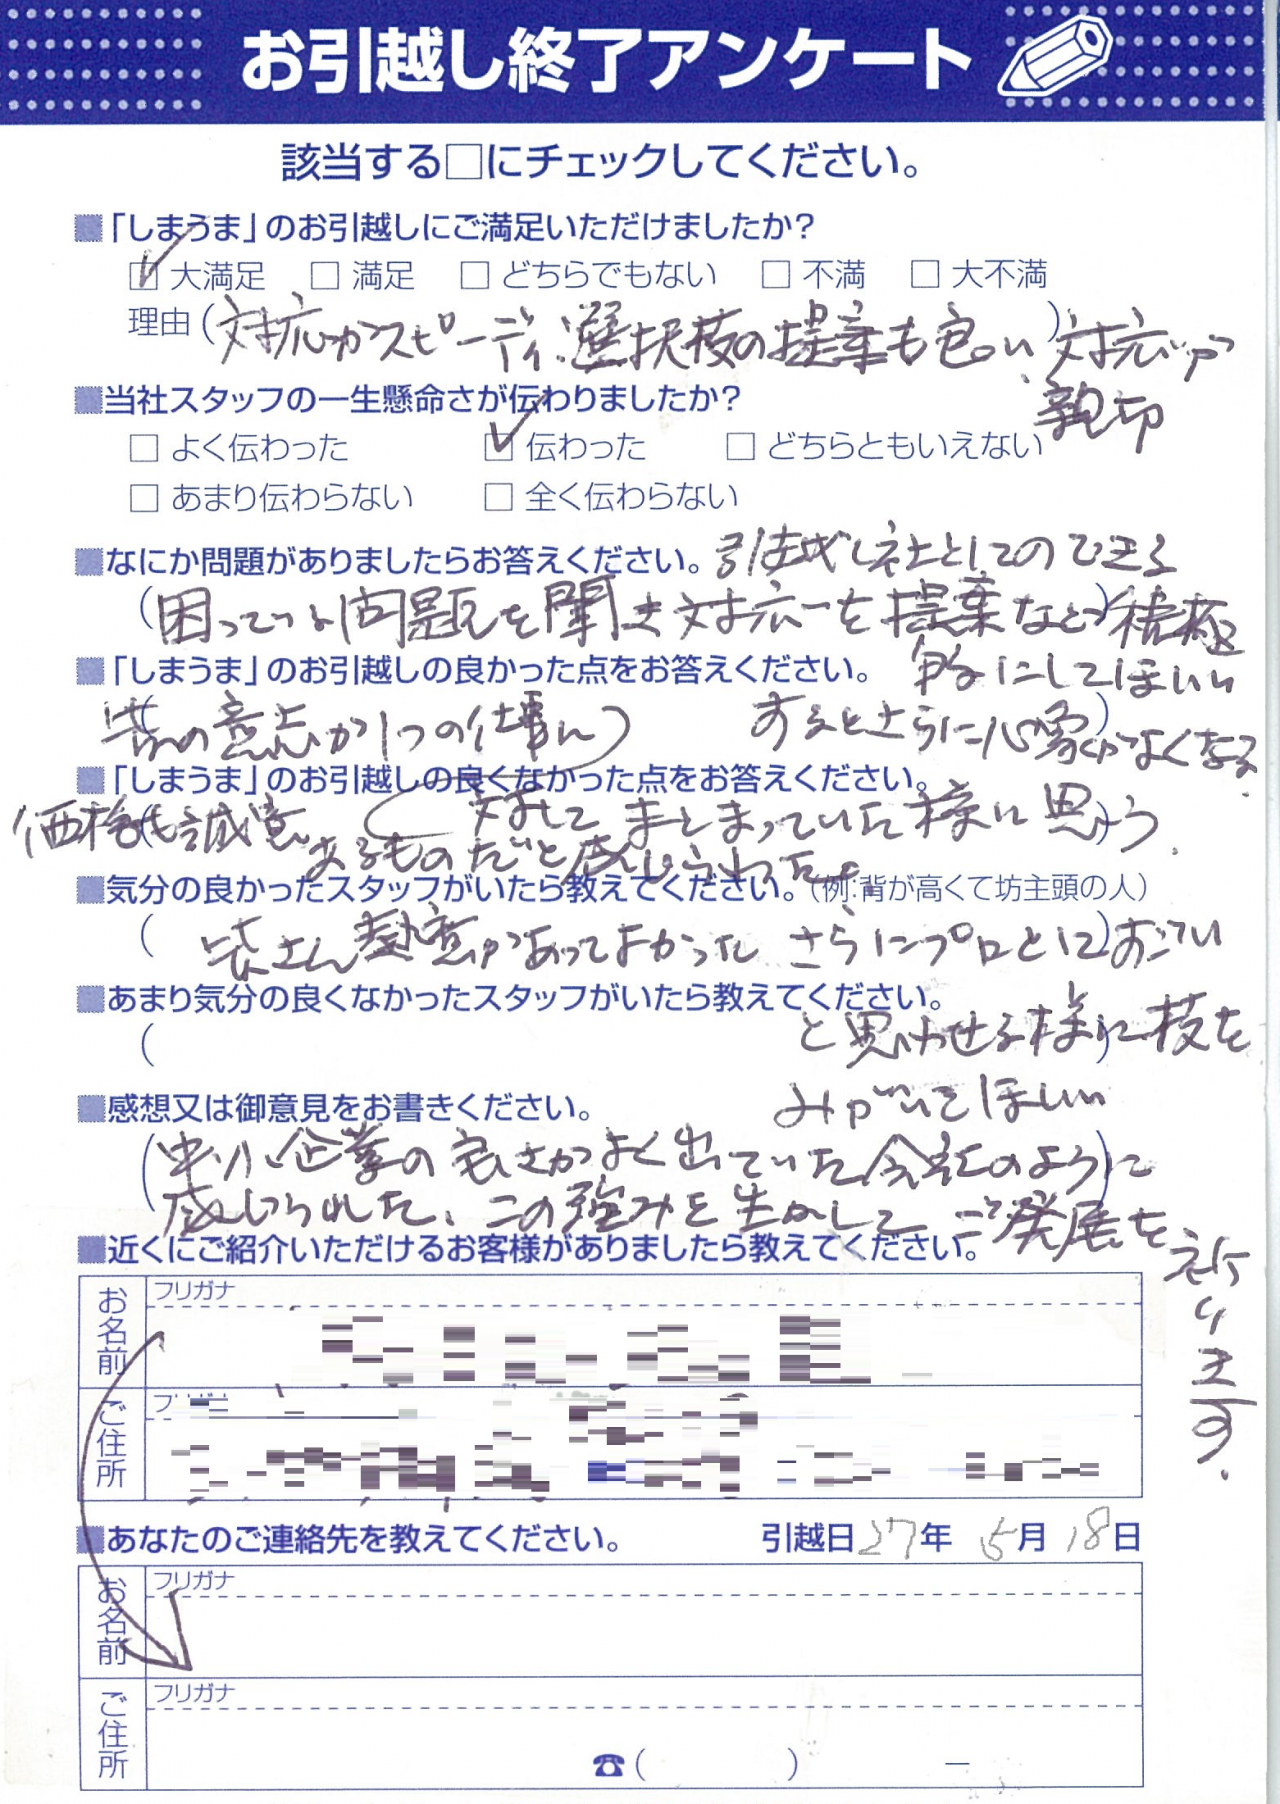 お引越し終了アンケート
該当する□にチェックしてください。
■「しまうま」のお引越しにご満足いただけましたか?
☑大満足 □満足 □どちらでもない □不満 □大不満
理由(対応がスピーディ、選択枝の提案も良い、)対応が
親切
■当社スタッフの一生懸命さが伝わりましたか?
□よく伝わった ☑伝わった □どちらともいえない
□あまり伝わらない □全く伝わらない
■なにか問題がありましたらお答えください。引越し社としてのできる
(困っている問題を聞き対応を提案など)積極
■「しまうま」のお引越しの良かった点をお答えください。的にしてほしい
皆の意点が1つの仕事に するとさらに心象がよくなる.
■「しまうま」のお引越しの良くなかった点をお答えください。
対して まとまっていた様に思う.
価格も誠意
あるものだと感じられた。
■気分の良かったスタッフがいたら教えてください。(例:背が高くて坊主頭の人)
(皆さん熱意があってよかった さらにプロとして)すごい
■あまり気分の良くなかったスタッフがいたら教えてください。
( と思わせる様に)技を
みがいてほしい
■感想又は御意見をお書きください。
(中小企業の良さがよく出ていた会社のように)
感じられた、この強みを生かして ご発展を
祈ります.
■近くにご紹介いただけるお客様がありましたら教えてください。
お名前 フリガナ
ご住所
■あなたのご連絡先を教えてください。 引越日27年 5月 18日
お名前 フリガナ
ご住所 フリガナ
☎( ) －